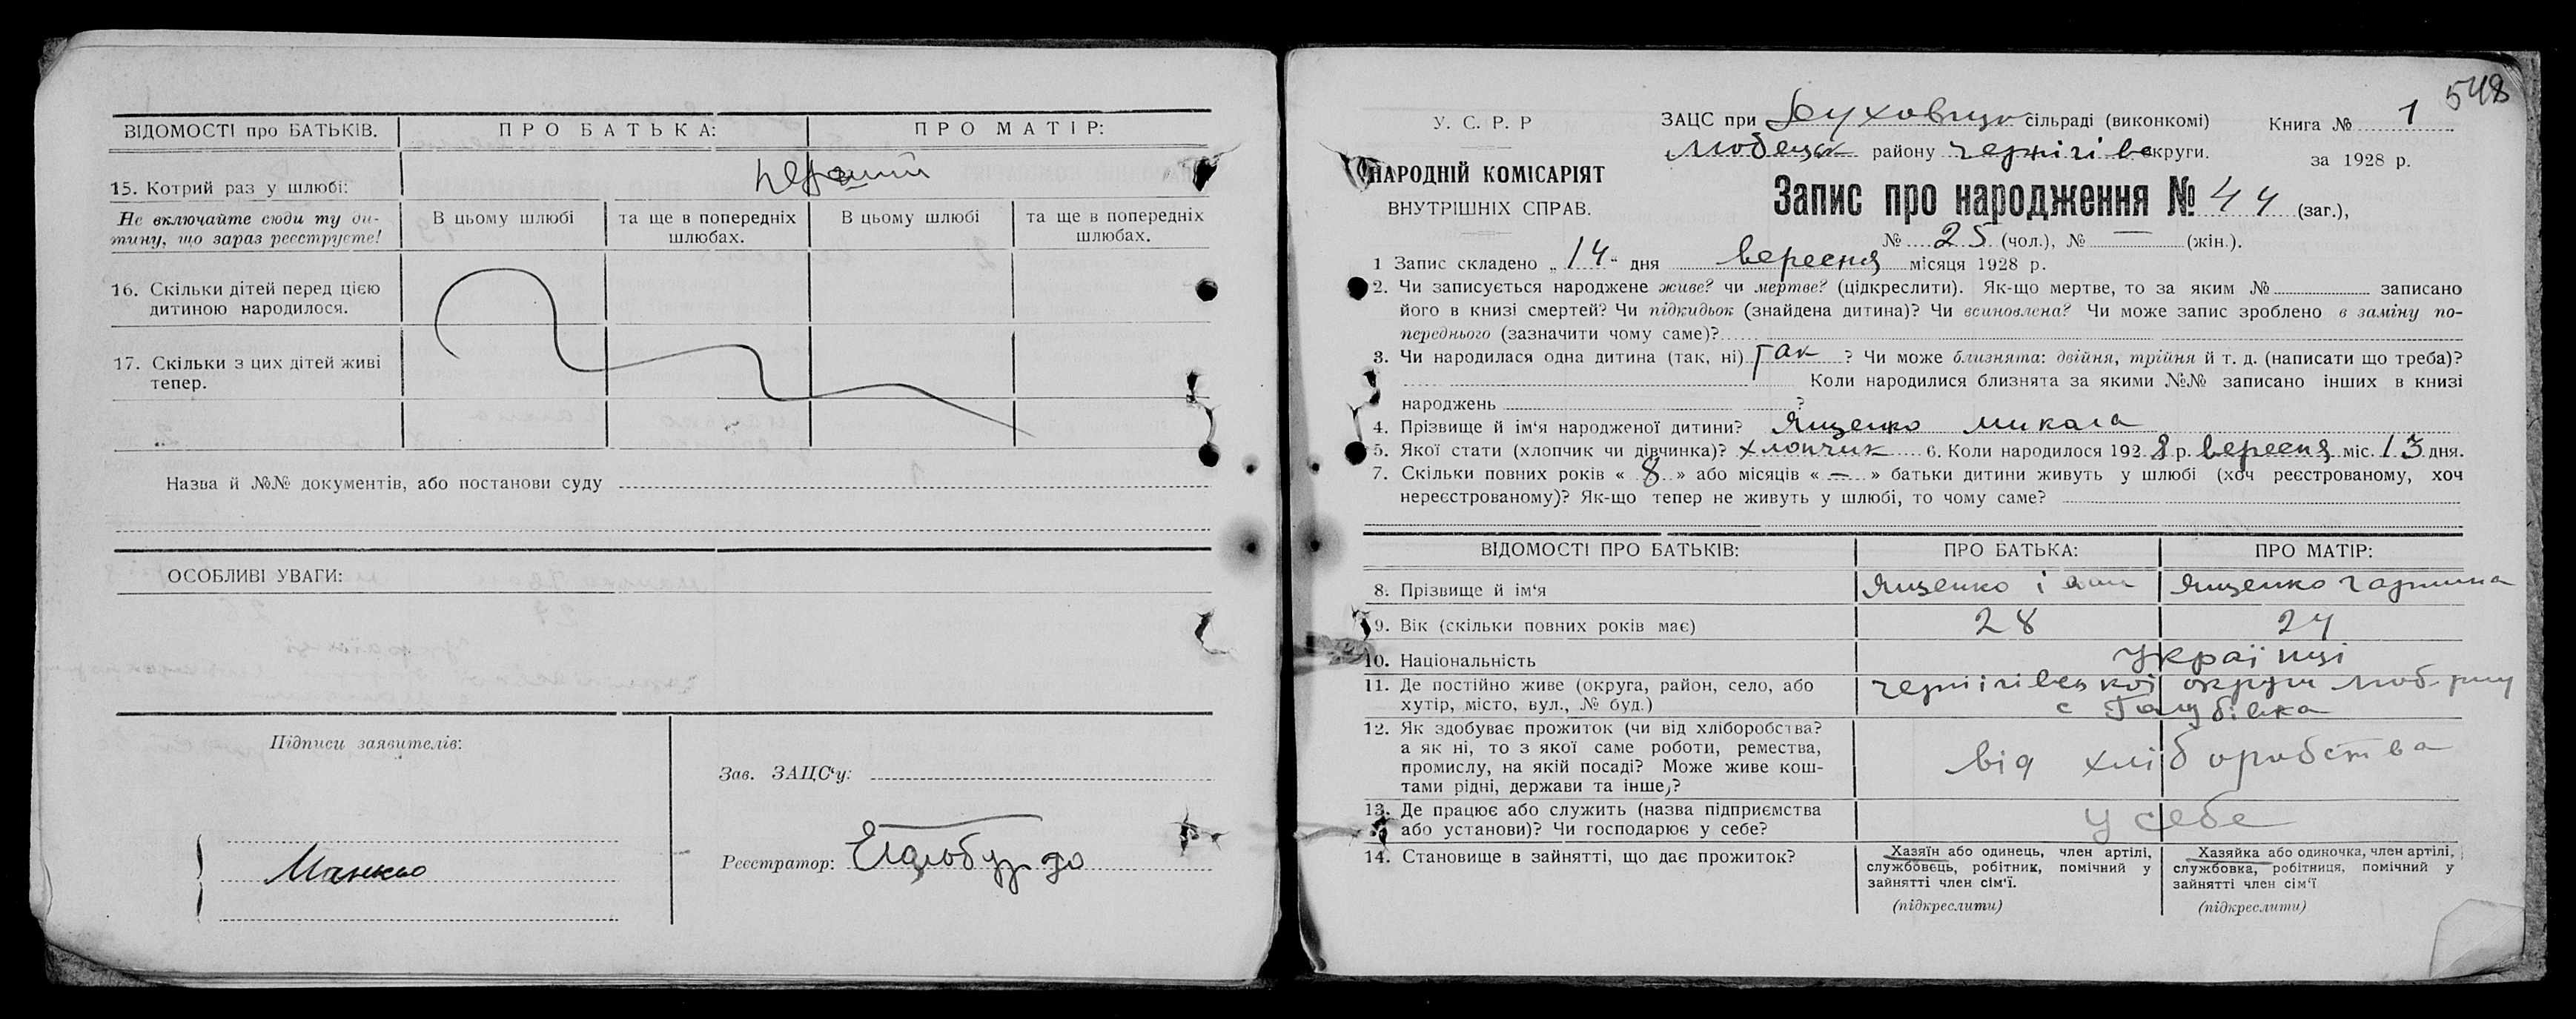 ВІДОМОСТІ про БАТЬКІВ.
ПРО БАТЬКА:
ПРО МАТІР:
15. Котрий раз у шлюбі:
перший
Не включайте сюди ту ди-
тину, що зараз реєструєте!
В цьому шлюбі
та ще в попередніх
шлюбах.
В цьому шлюбі
та ще в попередніх
шлюбах.
16. Скільки дітей перед цією
дитиною народилося.
17. Скільки з цих дітей живі
тепер.
Назва й №№ документів, або постанови суду
ОСОБЛИВІ УВАГИ:
Підписи заявителів:
Зав. ЗАЦС'у:
Реєстратор:
548
У. С. Р. Р
НАРОДНІЙ КОМІСАРІЯТ
ВНУТРІШНІХ СПРАВ.
ЗАЦС при сільраді (виконкомі)
Любецьк району Чернігівс округи.
Книга № 1
за 1928 р.
Запис про народження № 44 (заг.),
№ 25 (чол.), № — (жін.).
1 Запис складено „14" дня вересня місяця 1928 р.
2. Чи записується народжене живе? чи мертве? (підкреслити). Як-що мертве, то за яким № записано
його в книзі смертей? Чи підкидьок (знайдена дитина)? Чи всиновлена? Чи може запис зроблено в заміну по-
переднього (зазначити чому саме)?
3. Чи народилася одна дитина (так, ні) так ? Чи може близнята: двійня, трійня й т. д. (написати що треба)?
Коли народилися близнята за якими №№ записано інших в книзі
народжень ?
4. Прізвище й ім'я народженої дитини? Ященко Микола
5. Якої стати (хлопчик чи дівчинка)? хлопчик 6. Коли народилося 1928 р. вересня міс. 13 дня.
7. Скільки повних років « 8 » або місяців « — » батьки дитини живуть у шлюбі (хоч реєстрованому, хоч
нереєстрованому)? Як-що тепер не живуть у шлюбі, то чому саме?
ВІДОМОСТІ ПРО БАТЬКІВ:
ПРО БАТЬКА:
ПРО МАТІР:
8. Прізвище й ім'я
Ященко
Ященко
9. Вік (скільки повних років має)
28
24
10. Національність
українці
11. Де постійно живе (округа, район, село, або
хутір, місто, вул., № буд.)
Чернігівської округи Люб. р-ну
с Голубівка
12. Як здобуває прожиток (чи від хліборобства?
а як ні, то з якої саме роботи, ремества,
промислу, на якій посаді? Може живе кош-
тами рідні, держави та інше)?
від хліборобства
13. Де працює або служить (назва підприємства
або установи)? Чи господарює у себе?
у себе
14. Становище в зайнятті, що дає прожиток?
Хазяїн або одинець, член артілі,
службовець, робітник, помічний у
зайнятті член сім'ї.
(підкреслити)
Хазяйка або одиночка, член артілі,
службовка, робітниця, помічний у
зайнятті член сім'ї
(підкреслити)